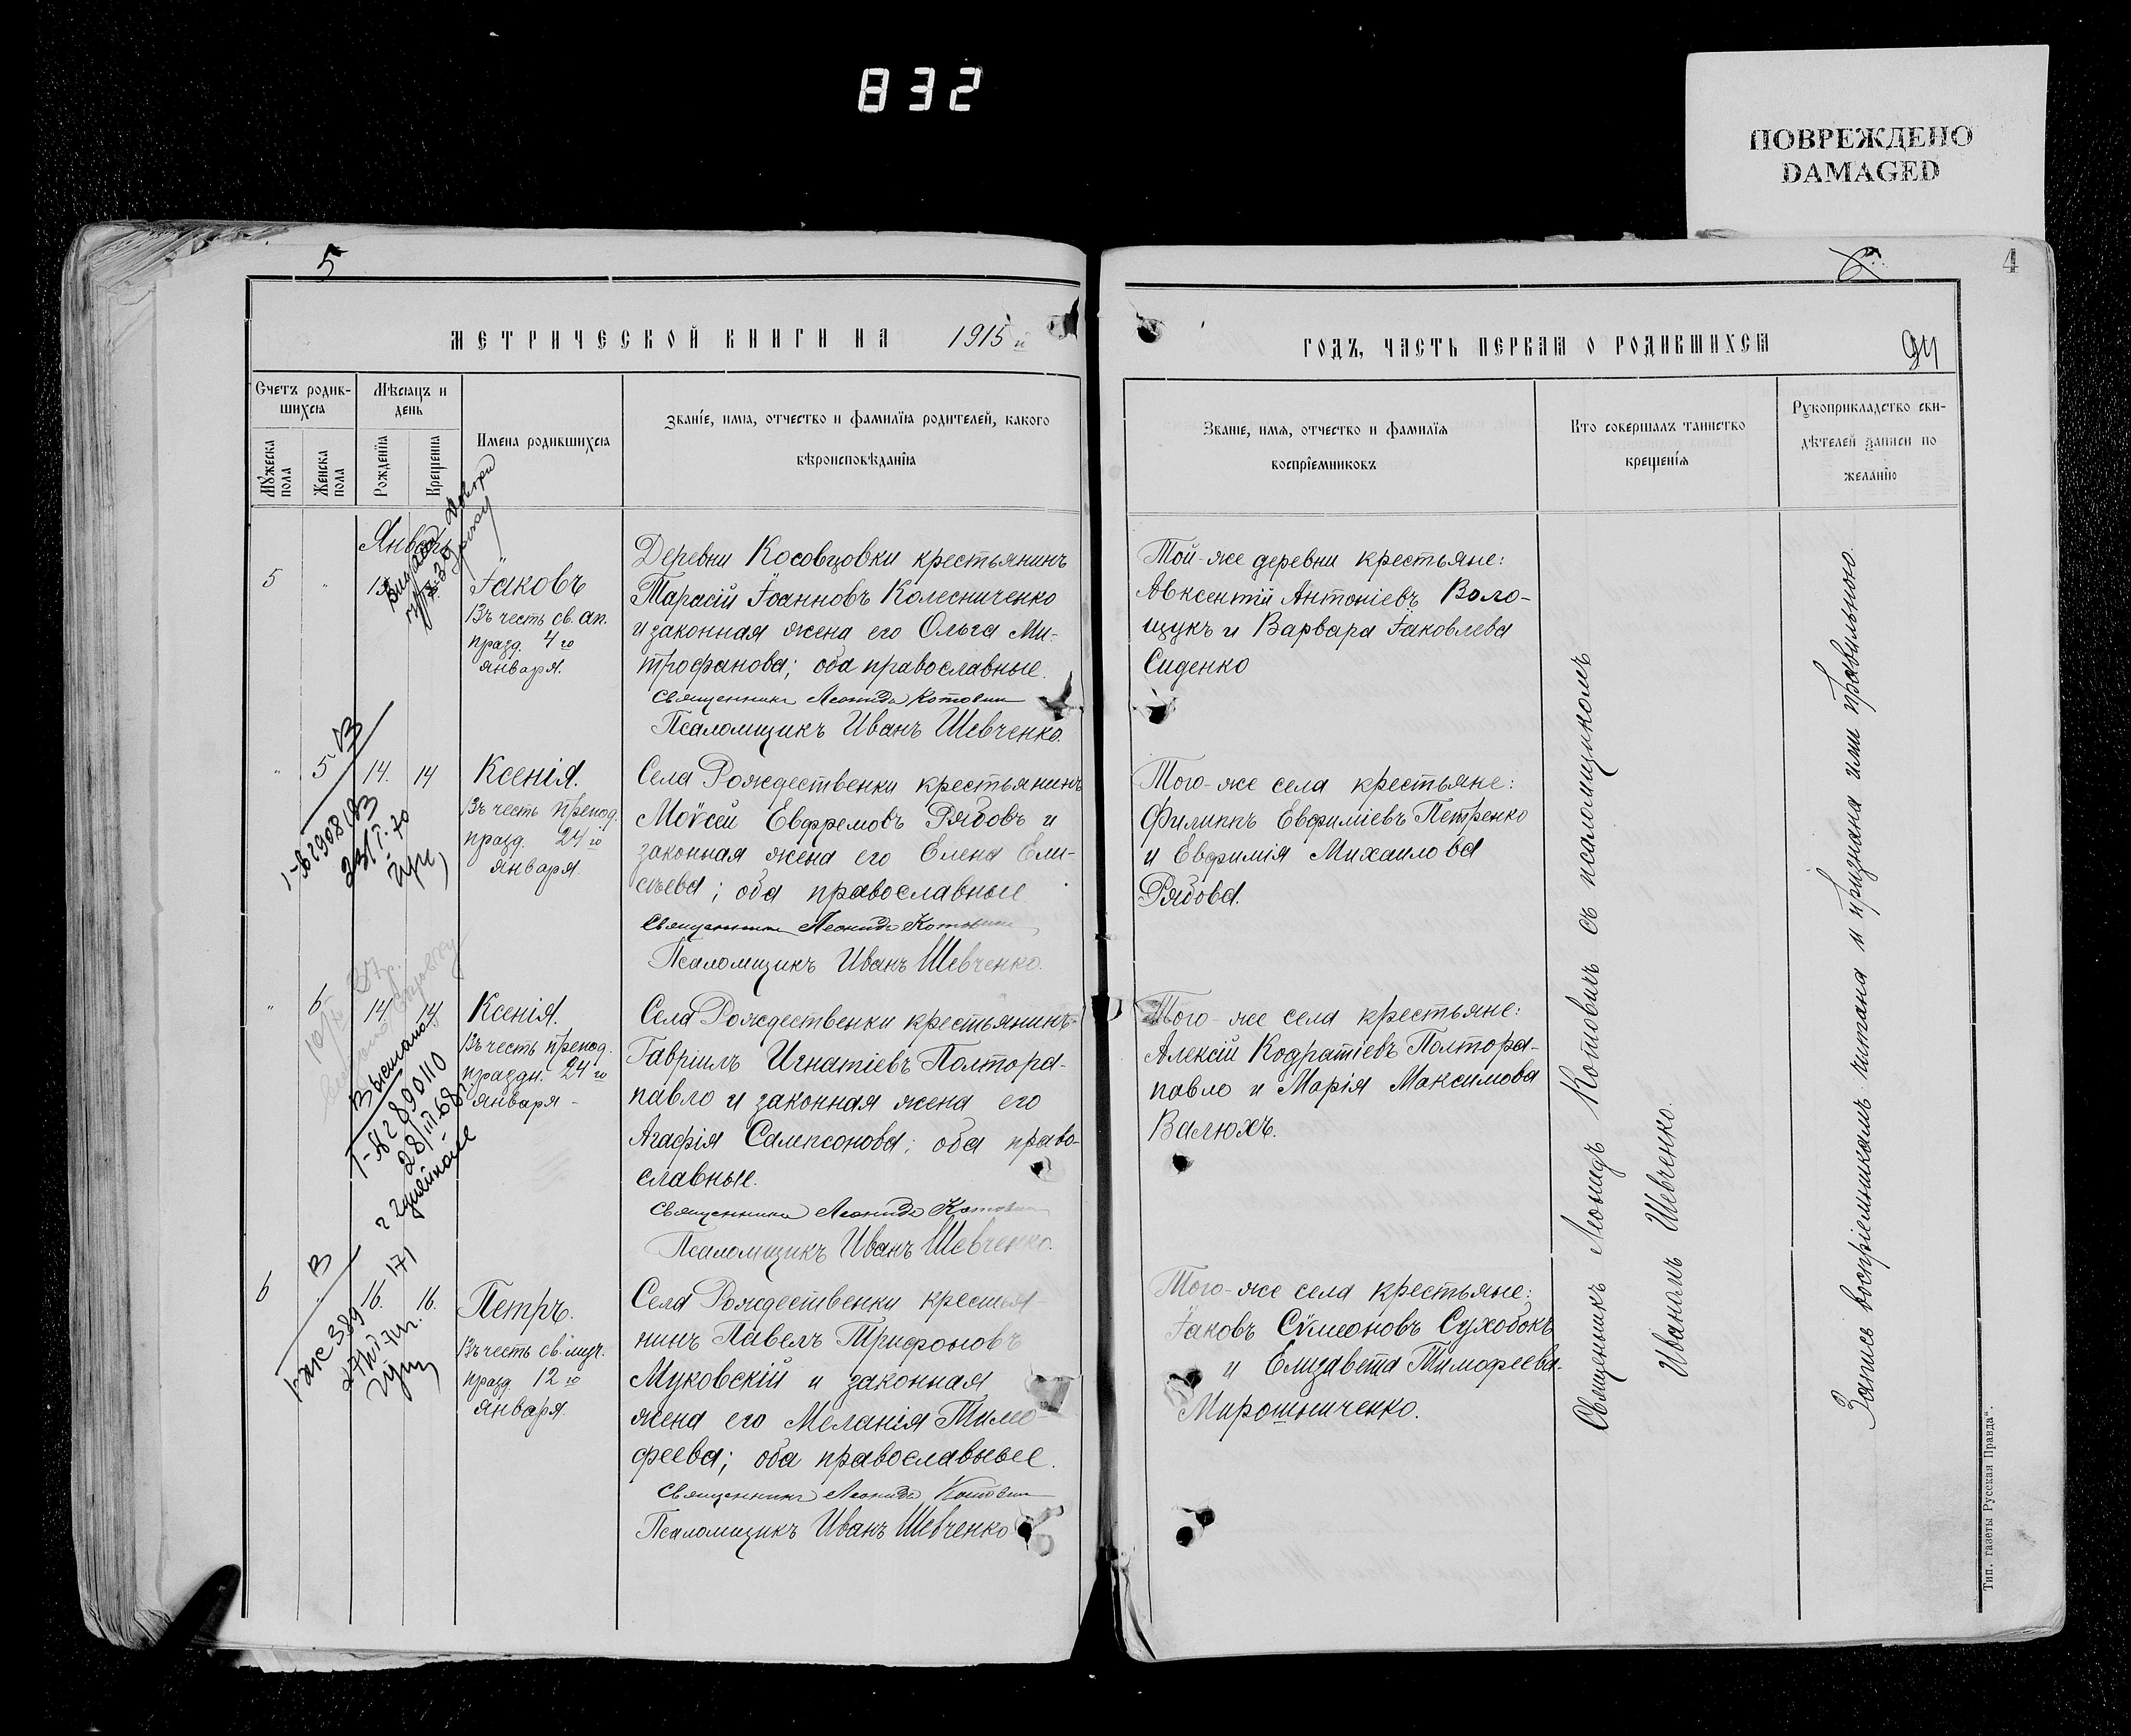 832
ПОВРЕЖДЕНО
DAMAGED
5
4
МЕТРИЧЕСКОЙ КНИГИ НА 1915й
ГОДЪ, ЧАСТЬ ПЕРВАЯ О РОДИВШИХСЯ
Счетъ родив-
шихся
Мѣсяцъ и
день
Мужеска
пола
Женска
пола
Рожденія
Крещенія
Имена родившихся
Званіе, имя, отчество и фамилія родителей, какого
вѣроисповѣданія
Званіе, имя, отчество и фамилія
воспріемниковъ
Кто совершалъ таинство
крещенія
Рукоприкладство сви-
дѣтелей записи по
желанію
Январь
5 " 13
Іаковъ
Въ честь св. ап.
празд. 4го
января.
Деревни Косовцовки крестьянинъ
Тарасій Іоанновъ Колесниченко
и законная жена его Ольга Ми-
трофанова; оба православные.
Священникъ Леонидъ Котович
Псаломщикъ Иванъ Шевченко.
Той-же деревни крестьяне:
Авксентій Антоніевъ Воло-
щукъ и Варвара Іаковлева
Сиденко
" 5 14. 14
Ксенія.
Въ честь препод.
празд. 24го
января.
Села Рождественки крестьянинъ
Моѵсей Евфремовъ Рябовъ и
законная жена его Елена Ели-
сѣева; оба православные
Священникъ Леонидъ Котович
Псаломщикъ Иванъ Шевченко.
Того-же села крестьяне:
Филиппъ Евфиміевъ Петренко
и Евфимія Михаилова
Рябова.
" 6 14 14
Ксенія.
Въ честь препод.
праздн. 24го
января -
Села Рождественки крестьянинъ
Гавріилъ Игнатіевъ Полтора-
павло и законная жена его
Агафія Сампсонова; оба право-
славные.
Священникъ Леонидъ Котович
Псаломщикъ Иванъ Шевченко.
Того-же села крестьяне:
Алексій Кодратіевъ Полтора-
павло и Марія Максимова
Валюхъ.
Выслано
28/III 68г
6 " 16. 16.
Петръ.
Въ честь св. муч.
празд. 12го
января.
Села Рождественки крестья-
нинъ Павелъ Трифоновъ
Муковскій и законная
жена его Меланія Тимо-
феева; оба православные.
Священникъ Леонидъ Котович
Псаломщикъ Иванъ Шевченко
Того-же села крестьяне:
Іаковъ Сѵмеоновъ Сухобокъ
и Елизавета Тимофеева
Мирошниченко.
Священникъ Леонидъ Котовичъ съ псаломщикомъ
Иваномъ Шевченко.
Запись воспріемникамъ читана и признана ими правильною.
Тип. газеты Русская Правда".